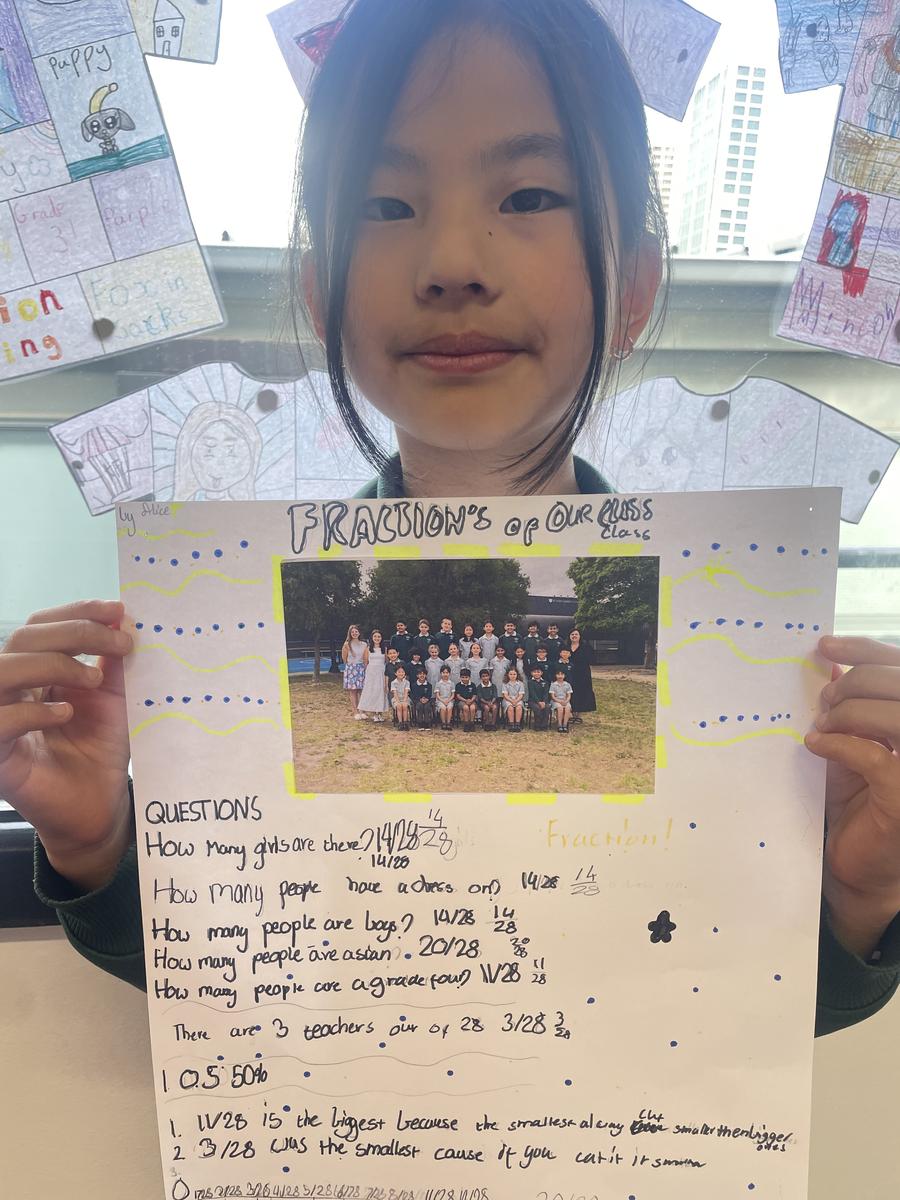 puppy
Grade
3!
Purple
ion
ing
Fox in
socks
by Alice
FRACTION'S OF OUR CLASS
Class
QUESTIONS
How many girls are there? 14/28 14/28
14/28
Fraction!
How many people have a dress on? 14/28 14/28
How many people are boys? 14/28 14/28
How many people are asian. 20/28 20/28
How many people are a grade four? 11/28 11/28
There are 3 teachers our of 28 3/28 3/28
1 0.5 50%
1. 11/28 is the biggest because the smallest alway cut smaller then bigger
ones
2 3/28 was the smallest cause if you cut it it smaller
3.
0 1/28 2/28 3/28 4/28 5/28 6/28 7/28 8/28